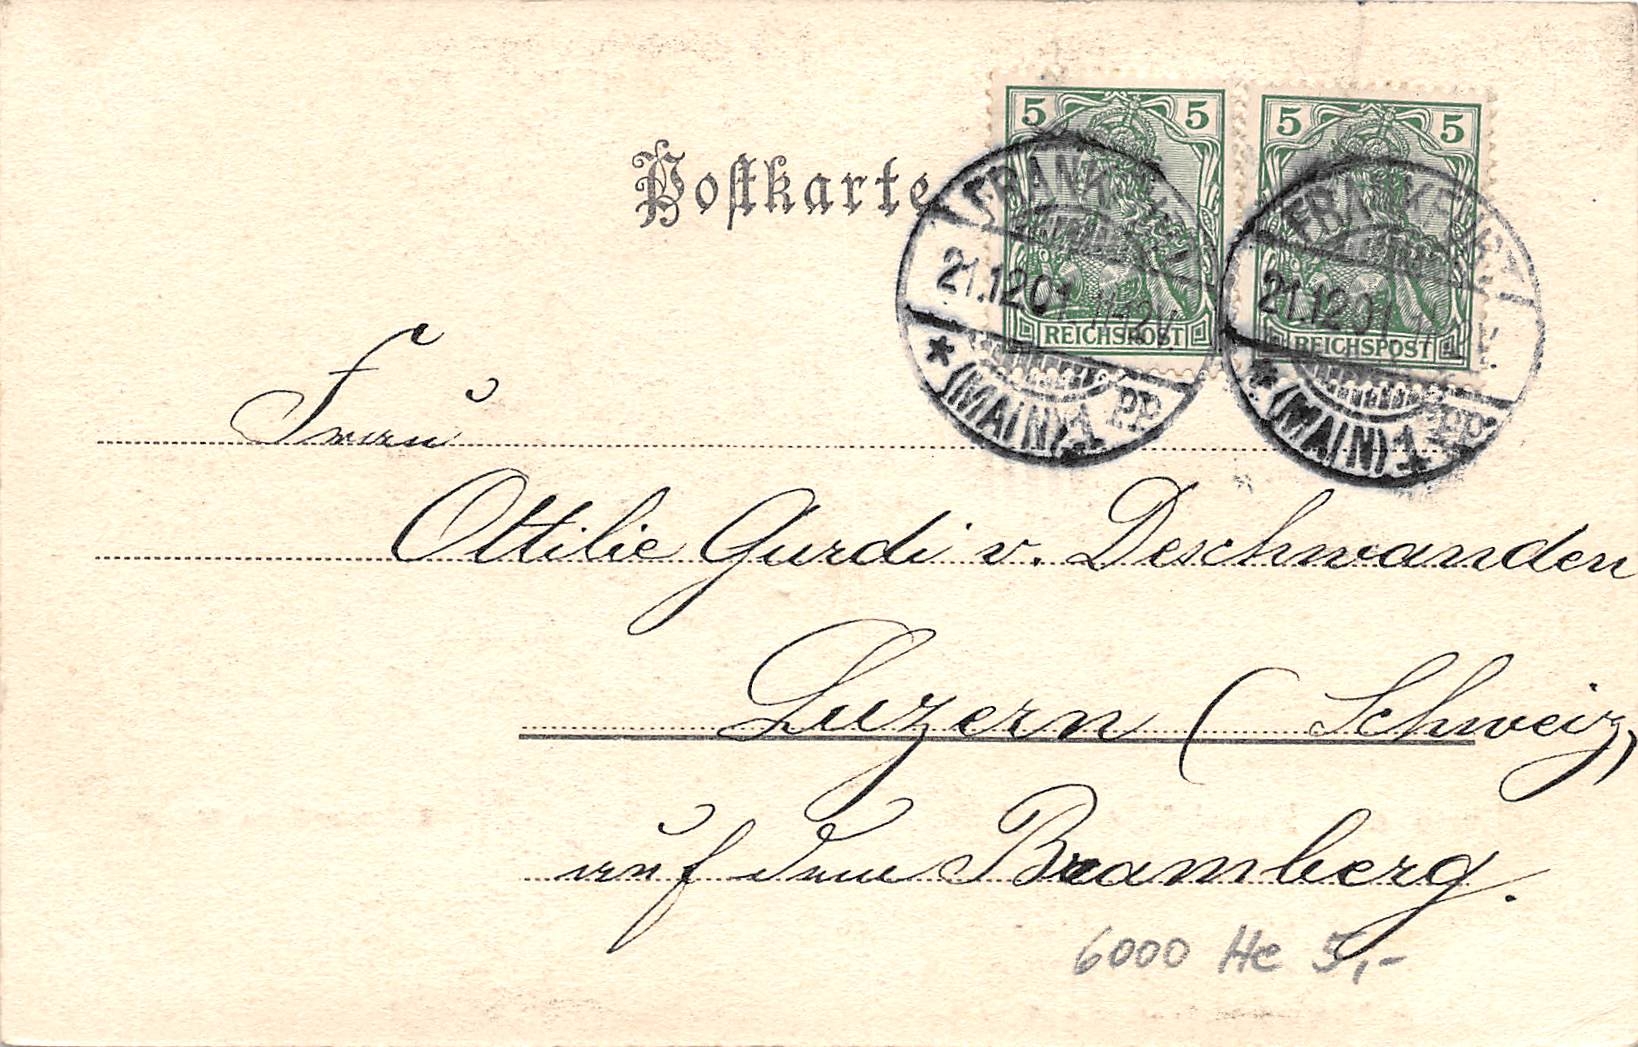 Postkarte
5 5
5 5
REICHSPOST
REICHSPOST
FRANKFURT
21.12.01. 11-12V.
* (MAIN) 1 PP.
FRANKFURT
21.12.01. V.
* (MAIN) 1 PP.
Frau
Ottilie Gurdi v. Deschwanden
Luzern (Schweiz)
auf dem Bramberg.
6000 He 5,-